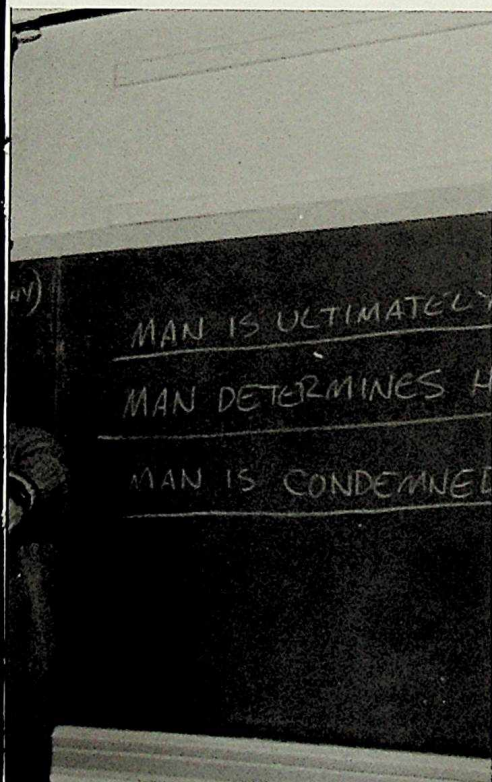 MAN IS ULTIMATELY
MAN DETERMINES H
MAN IS CONDEMNED